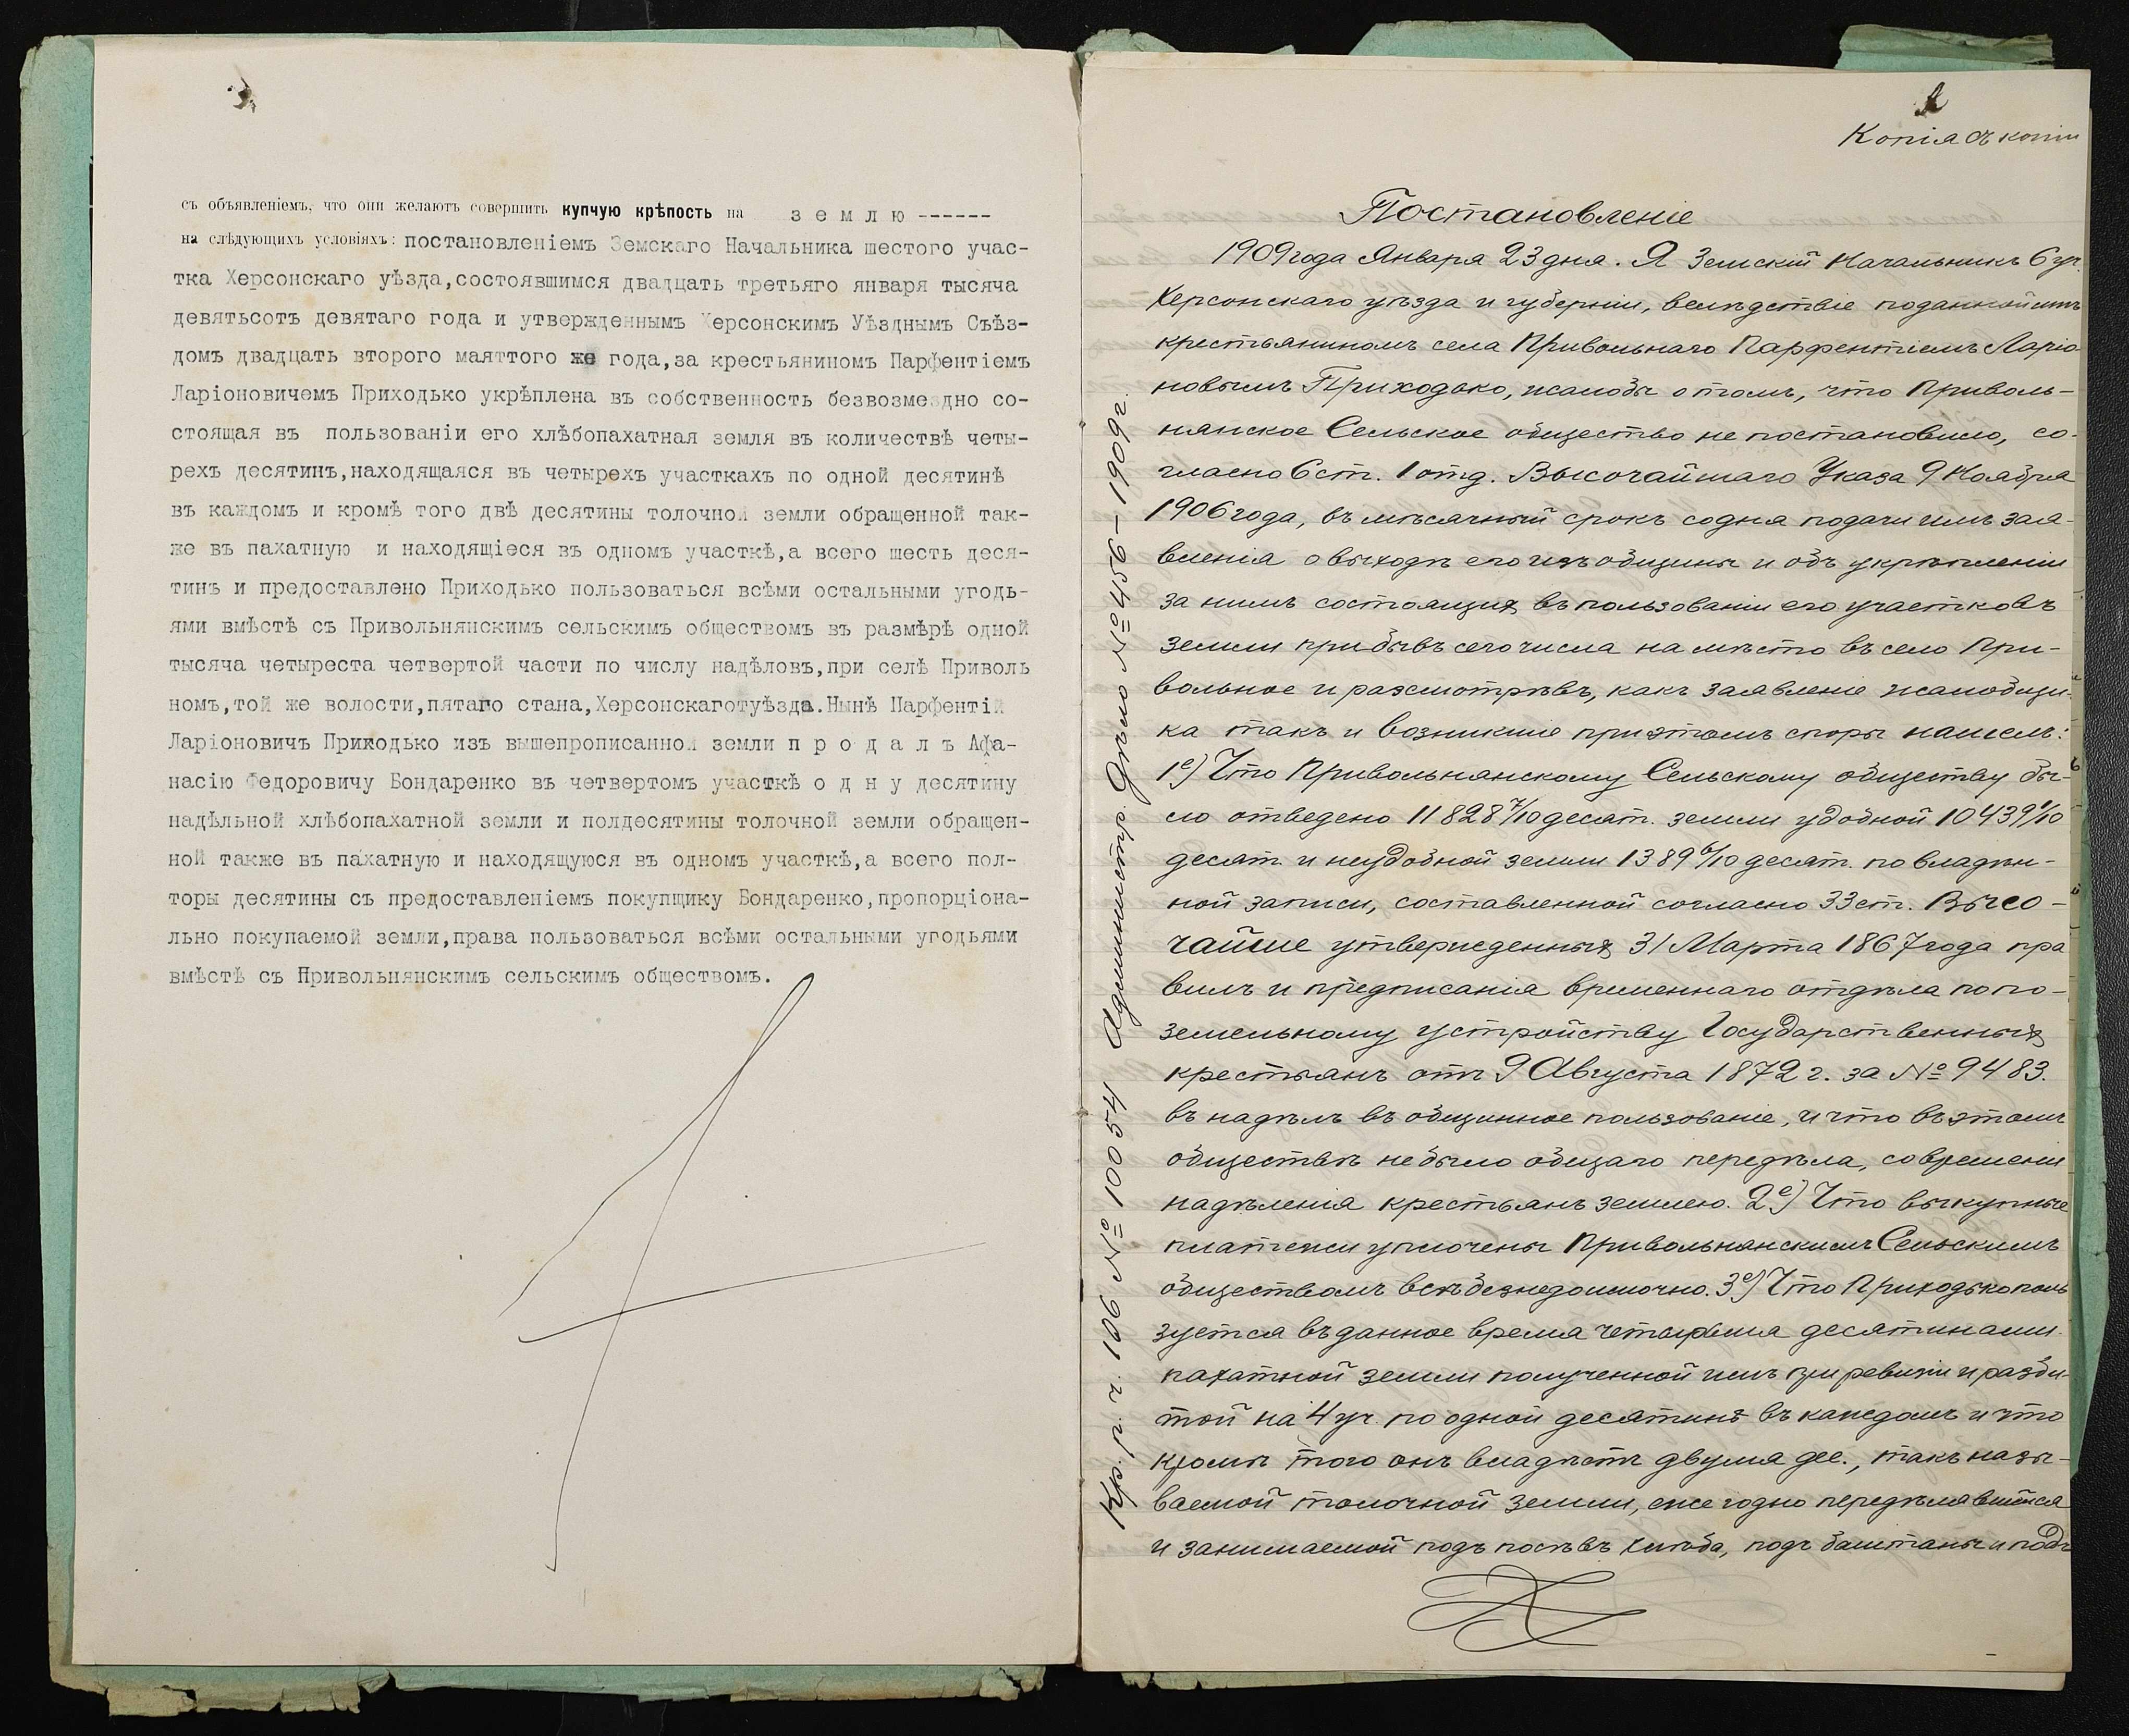 съ объявленіемъ, что они желаютъ совершить купчую крѣпость на з е м л ю ------
на слѣдующихъ условіяхъ: постановленіемъ Земскаго Начальника шестого учас-
тка Херсонскаго уѣзда,состоявшимся двадцать третьяго января тысяча
девятьсотъ девятаго года и утвержденнымъ Херсонскимъ Уѣзднымъ Съѣз-
домъ двадцать второго маяттого же года,за крестьяниномъ Парфентіемъ
Ларіоновичемъ Приходько укрѣплена въ собственность безвозмездно со-
стоящая въ пользованіи его хлѣбопахатная земля въ количествѣ четы-
рехъ десятинъ,находящаяся въ четырехъ участкахъ по одной десятинѣ
въ каждомъ и кромѣ того двѣ десятины толочной земли обращенной так-
же въ пахатную и находящіеся въ одномъ участкѣ,а всего шесть деся-
тинъ и предоставлено Приходько пользоваться всѣми остальными угодь-
ями вмѣстѣ съ Привольнянскимъ сельскимъ обществомъ въ размѣрѣ одной
тысяча четыреста четвертой части по числу надѣловъ,при селѣ Приволь
номъ,той же волости,пятаго стана,Херсонскаготуѣзда.Нынѣ Парфентій
Ларіоновичъ Приходько изъ вышепрописанной земли п р о д а л ъ Афа-
насію Федоровичу Бондаренко въ четвертомъ участкѣ о д н у десятину
надѣльной хлѣбопахатной земли и полдесятины толочной земли обращен-
ной также въ пахатную и находящуюся въ одномъ участкѣ,а всего пол-
торы десятины съ предоставленіемъ покупщику Бондаренко,пропорціона-
льно покупаемой земли,права пользоваться всѣми остальными угодьями
вмѣстѣ съ Привольнянскимъ сельскимъ обществомъ.
Копія съ копіи
Постановленіе
1909 года Января 23 дня. Я Земскій Начальникъ 6 уч.
Херсонскаго уѣзда и губерніи, вслѣдствіе поданной имъ
крестьяниномъ села Привольнаго Парфентіемъ Ларіо-
новымъ Приходько, жалобы о томъ, что Приволь-
нянское Сельское общество не постановило, со-
гласно 6 ст. 1 отд. Высочайшаго Указа 9 Ноября
1906 года, въ мѣсячный срокъ со дня подачи имъ зая-
вленія о выходѣ его изъ общины и объ укрѣпленіи
за нимъ состоящихъ въ пользованіи его участковъ
земли прибывъ сего числа на мѣсто въ село При-
вольное и разсмотрѣвъ, какъ заявленіе жалобщи-
ка такъ и возникшіе при этомъ споры нашелъ:
1е) Что Привольнянскому Сельскому обществу бы-
ло отведено 11828 7/10 десят. земли удобной 10439 1/10
десят. и неудобной земли 1389 6/10 десят. по владѣн-
ной записи, составленной согласно 33 ст. Высо-
чайше утвержденныхъ 31 Марта 1867 года пра
вилъ и предписанія временнаго отдѣла по по-
земельному устройству Государственныхъ
крестьянъ отъ 9 Августа 1872 г. за № 9483.
въ надѣлъ въ общинное пользованіе, и что въ этомъ
обществѣ не было общаго передѣла, со времени
надѣленія крестьянъ землею. 2е) Что выкупные
платежи уплочены Привольнянскимъ Сельскимъ
обществомъ всѣ безнедоимочно. 3е) Что Приходько поль
зуется въ данное время четырьмя десятинами
пахатной земли полученной имъ при ревизіи и разби-
той на 4 уч. по одной десятинѣ въ каждомъ и что
кромѣ того онъ владѣетъ двумя дес., такъ назы-
ваемой толочной земли, ежегодно передѣлявшейся
и занимаемой подъ посѣвъ хлѣба, подъ баштаны и подъ
Кр. п. ч. 106 № 10054 Администр. Дѣло № 456 - 1909 г.